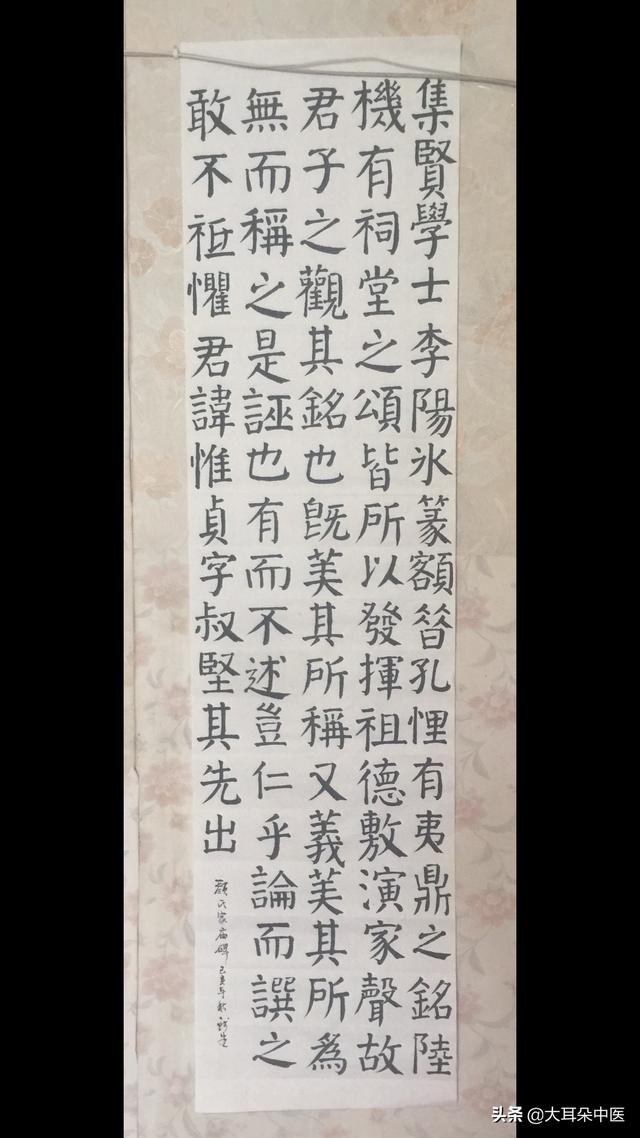 集賢學士李陽冰篆額昝孔悝有夷鼎之銘陸
機有祠堂之頌皆所以發揮祖德敷演家聲故
君子之觀其銘也旣美其所稱又義美其所為
無而稱之是誣也有而不述豈仁乎論而譔之
敢不祗懼君諱惟貞字叔堅其先出
顏氏家廟碑己亥年秋
头条 @大耳朵中医